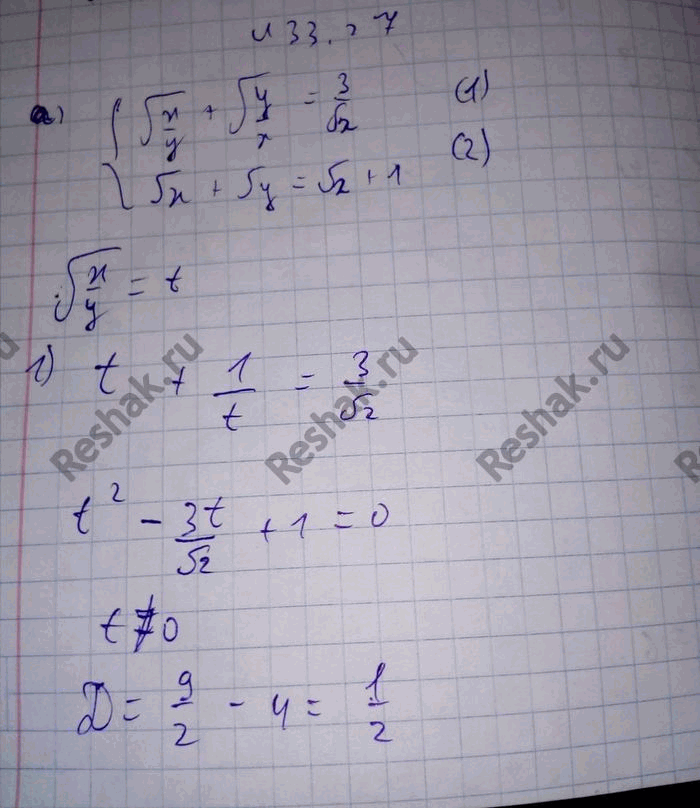 и 33.27
а) { √(x/y) + √(y/x) = 3/√2 (1)
√x + √y = √2 + 1 (2)
√(x/y) = t
1) t + 1/t = 3/√2
Reshak.ru Reshak.ru Reshak.ru
t² - 3t/√2 + 1 = 0
t ≠ 0
D = 9/2 - 4 = 1/2